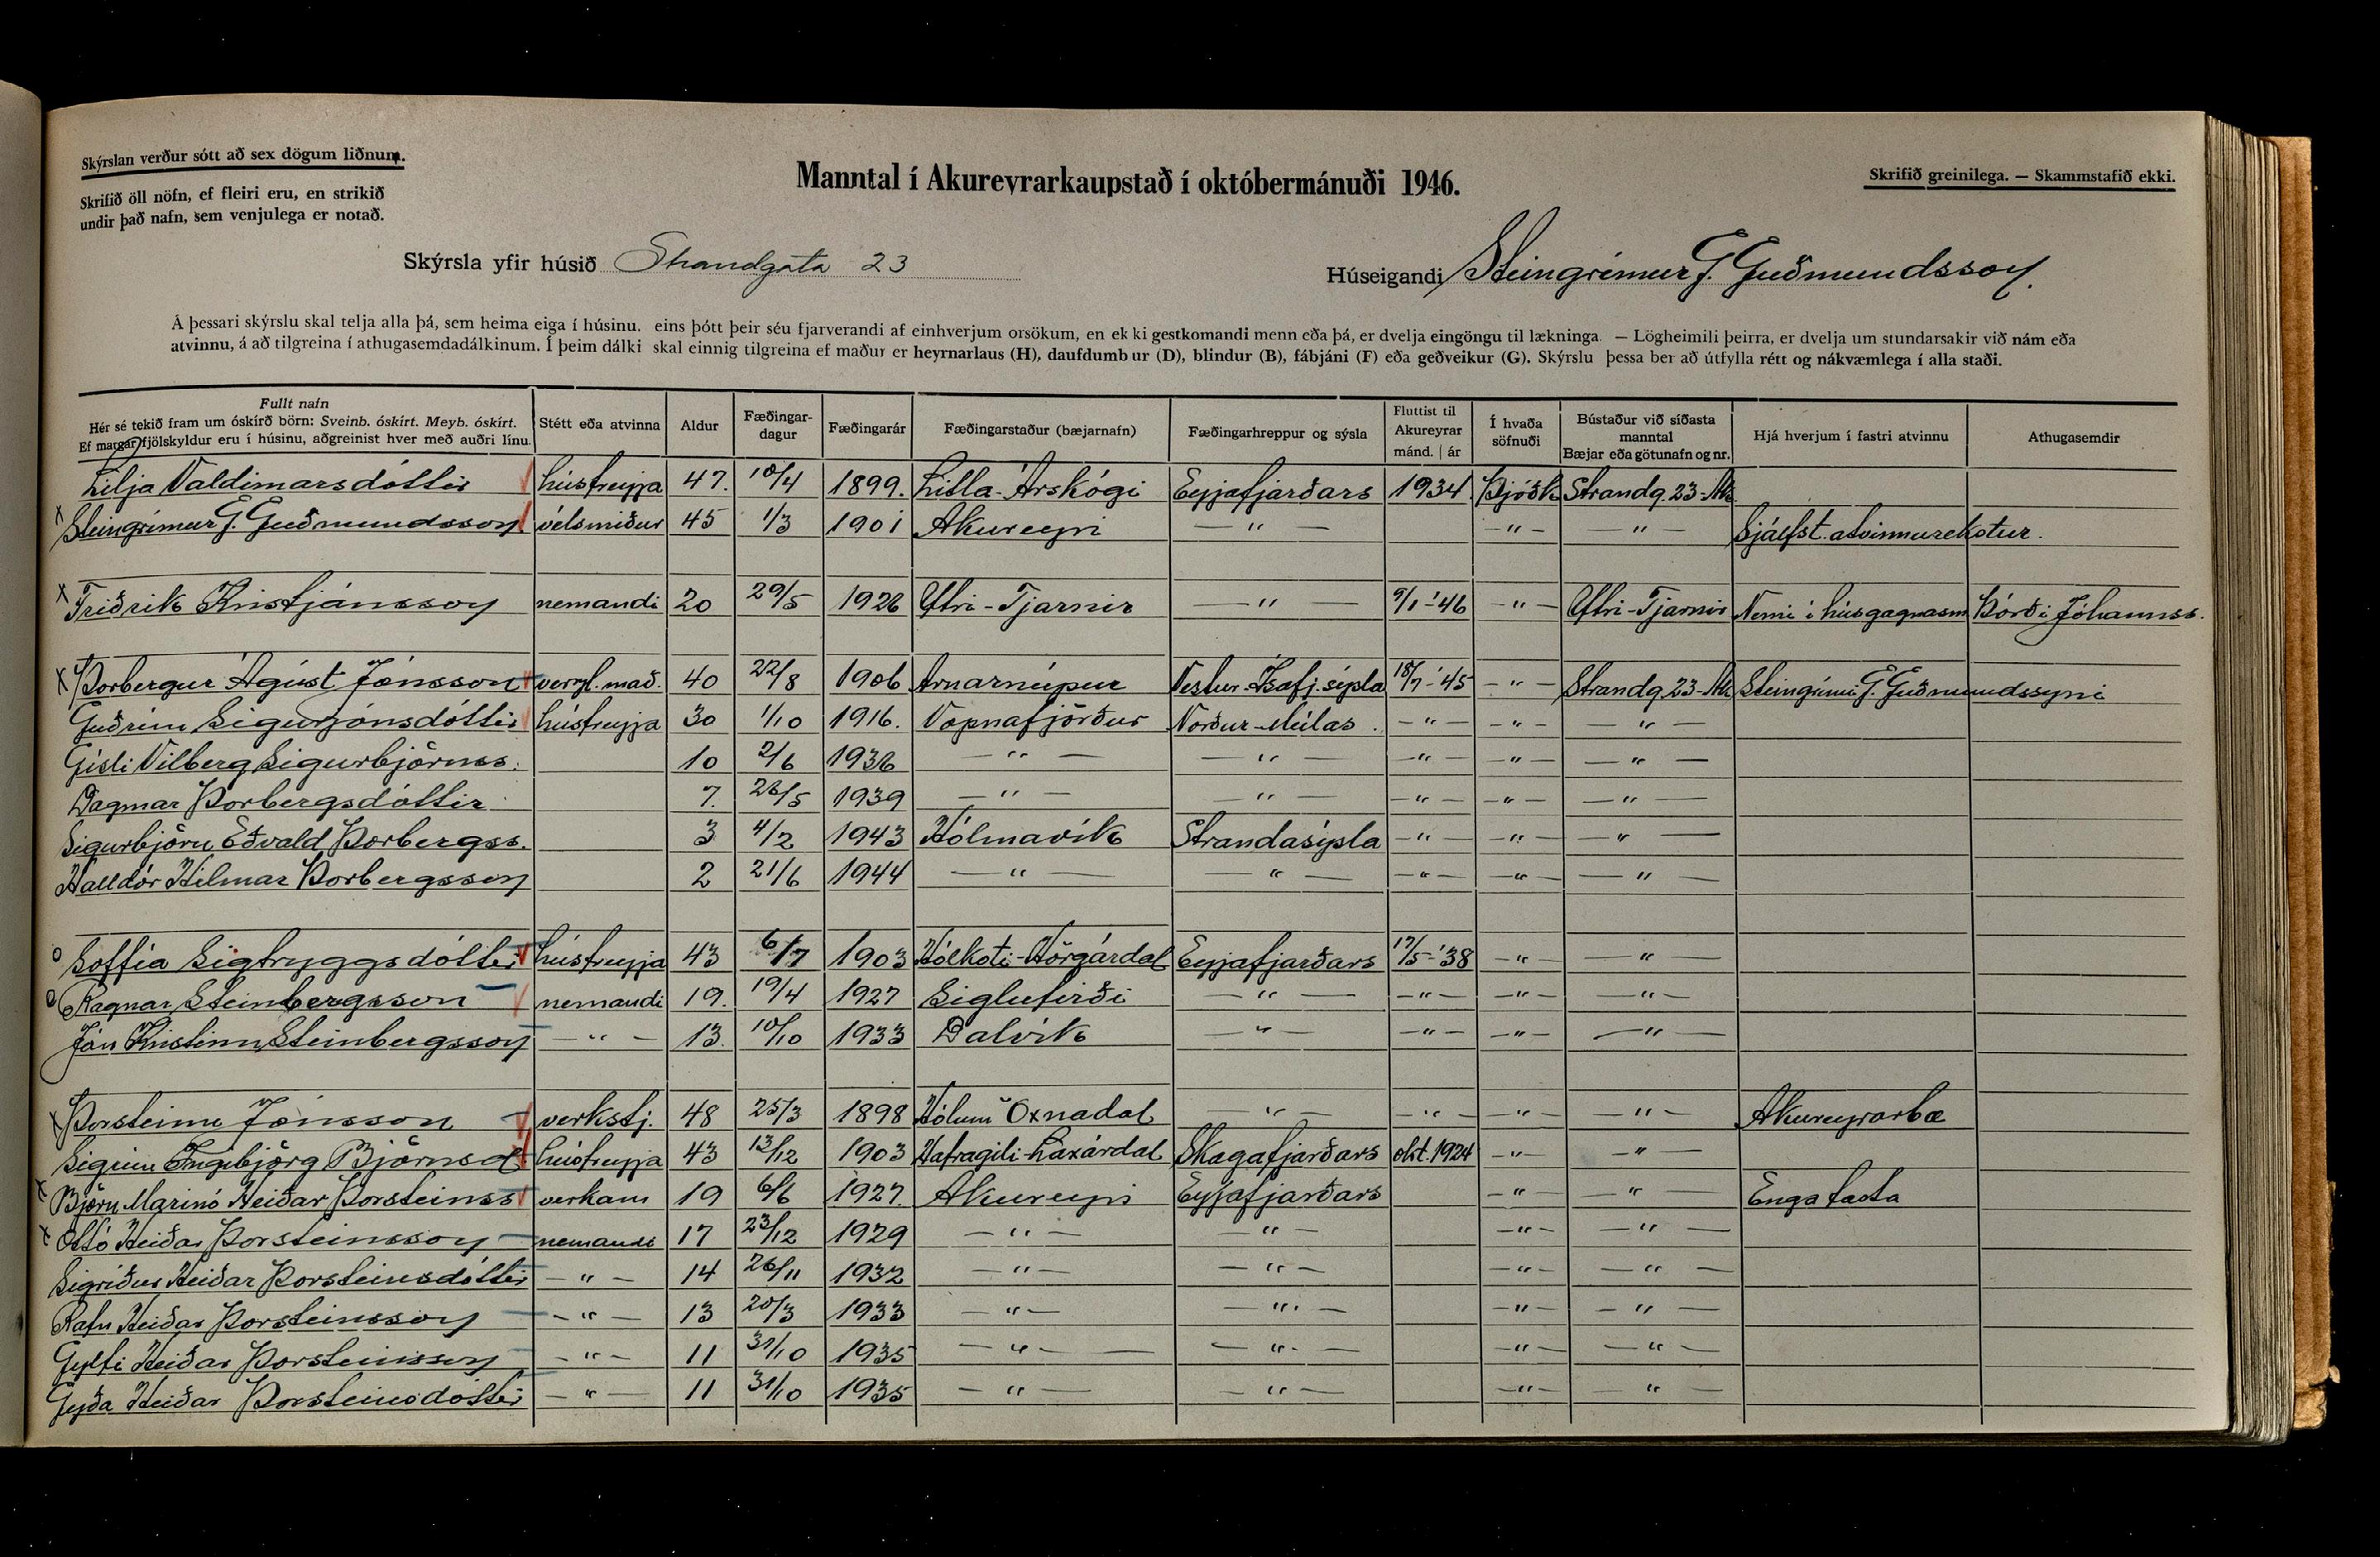 Skýrslan verður sótt að sex dögum liðnum.
Skrifið öll nöfn, ef fleiri eru, en strikið
undir það nafn, sem venjulega er notað.
Manntal í Akureyrarkaupstað í októbermánuði 1946.
Skrifið greinilega. — Skammstafið ekki.
Skýrsla yfir húsið Strandgata 23
Húseigandi Steingrímur G. Guðmundsson.
Á þessari skýrslu skal telja alla þá, sem heima eiga í húsinu, eins þótt þeir séu fjarverandi af einhverjum orsökum, en ekki gestkomandi menn eða þá, er dvelja eingöngu til lækninga. — Lögheimili þeirra, er dvelja um stundarsakir við nám eða
atvinnu, á að tilgreina í athugasemdadálkinum. Í þeim dálki skal einnig tilgreina ef maður er heyrnarlaus (H), daufdumbur (D), blindur (B), fábjáni (F) eða geðveikur (G). Skýrslu þessa ber að útfylla rétt og nákvæmlega í alla staði.
Fullt nafn
Hér sé tekið fram um óskírð börn: Sveinb. óskírt. Meyb. óskírt.
Ef margar fjölskyldur eru í húsinu, aðgreinist hver með auðri línu.
Stétt eða atvinna
Aldur
Fæðingar-
dagur
Fæðingarár
Fæðingarstaður (bæjarnafn)
Fæðingarhreppur og sýsla
Fluttist til
Akureyrar
mánd. | ár
Í hvaða
söfnuði
Bústaður við síðasta
manntal
Bæjar eða götunafn og nr.
Hjá hverjum í fastri atvinnu
Athugasemdir
Lilja Valdimarsdóttir húsfreyja 47. 10/4 1899. Litla-Árskógi Eyjafjarðars 1934 Þjóðk Strandg. 23-Ak
x Steingrímur G. Guðmundsson vélsmiður 45 1/3 1901 Akureyri — " — - " - — " — Sjálfst. atvinnurekstur.
x Friðrik Kristjánsson nemandi 20 29/5 1926 Ytri-Tjarnir — " — 9/1-'46 - " - Ytri-Tjarnir Nemi í húsgagnasm Þórði Jóhannss.
x Þorbergur Ágúst Jónsson verzl. mað. 40 22/8 1906 Arnarnúpur Vestur-Ísafj.sýsla 18/7-'45 - " - Strandg 23-Ak Steingrími G. Guðmundssyni
Guðrún Sigurjónsdóttir húsfreyja 30 1/10 1916. Vopnafjörður Norður-Múlas. - " - - " - — " —
Gísli Vilberg Sigurbjörnss. 10 2/6 1936 — " — — " — - " - - " - — " —
Dagmar Þorbergsdóttir 7. 26/5 1939 — " — — " — - " - - " - — " —
Sigurbjörn Eðvald Þorbergss. 3 4/2 1943 Hólmavík Strandasýsla - " - - " - — " —
Halldór Hilmar Þorbergsson 2 21/6 1944 — " — — " — - " - - " - — " —
o Soffía Sigtryggsdóttir húsfreyja 43 6/7 1903 Hólkoti-Hörgárdal Eyjafjarðars 17/5-'38 - " - — " —
o Ragnar Steinbergsson nemandi 19. 19/4 1927 Siglufirði — " — - " - - " - — " —
Jón Kristinn Steinbergsson - " - 13. 10/10 1933 Dalvík — " — - " - - " - — " —
x Þorsteinn Jónsson verkstj. 48 25/3 1898 Hólum Öxnadal — " — - " - - " - - " - Akureyrarbæ
Sigrún Ingibjörg Björnsd húsfreyja 43 13/12 1903 Hafragili-Laxárdal Skagafjarðars okt. 1924 - " - - " -
x Björn Marinó Heiðar Þorsteinss verkam 19 6/6 1927. Akureyri Eyjafjarðars - " - — " — Enga fasta
x Ottó Heiðar Þorsteinsson nemandi 17 23/12 1929 — " — — " — - " - — " —
Sigríður Heiðar Þorsteinsdóttir - " - 14 26/11 1932 — " — — " — - " - — " —
Rafn Heiðar Þorsteinsson - " - 13 20/3 1933 — " — — " — - " - — " —
Gylfi Heiðar Þorsteinsson - " - 11 31/10 1935 — " — — " — - " - — " —
Gyða Heiðar Þorsteinsdóttir - " - 11 31/10 1935 — " — — " — - " - " —